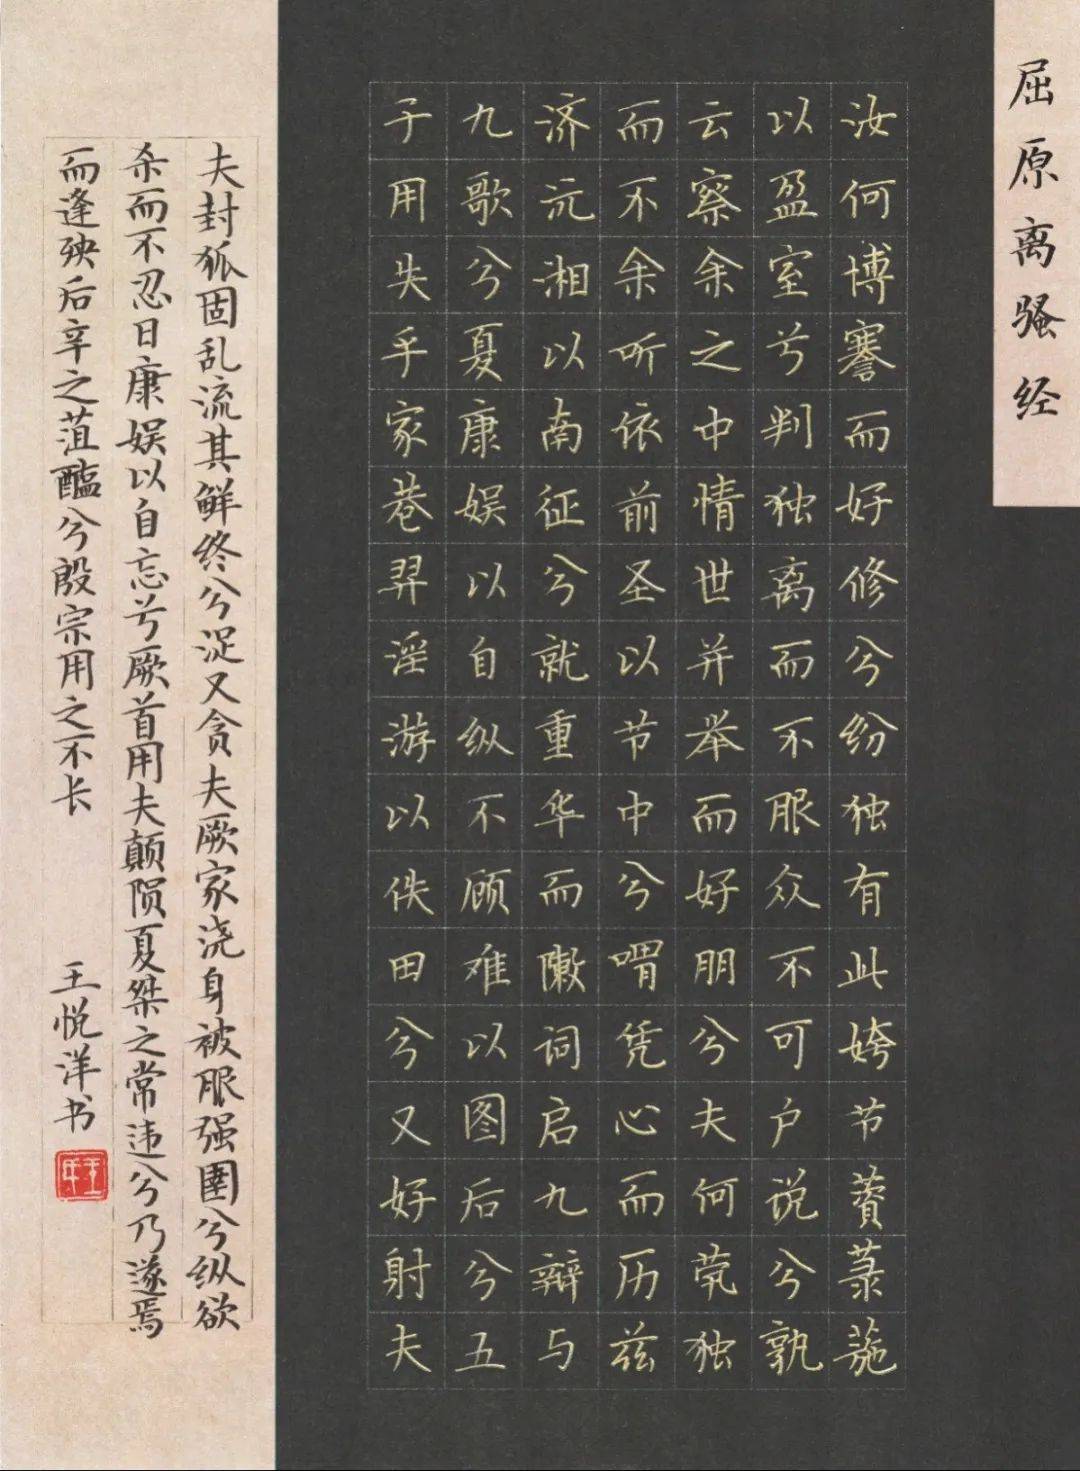 屈原离骚经
汝何博謇而好修兮纷独有此姱节薋菉葹
以盈室兮判独离而不服众不可户说兮孰
云察余之中情世并举而好朋兮夫何茕独
而不余听依前圣以节中兮喟凭心而历兹
济沅湘以南征兮就重华而敶词启九辩与
九歌兮夏康娱以自纵不顾难以图后兮五
子用失乎家巷羿淫游以佚田兮又好射夫
夫封狐固乱流其鲜终兮浞又贪夫厥家浇身被服强圉兮纵欲
杀而不忍日康娱以自忘兮厥首用夫颠陨夏桀之常违兮乃遂焉
而逢殃后辛之菹醢兮殷宗用之不长
王悦洋书